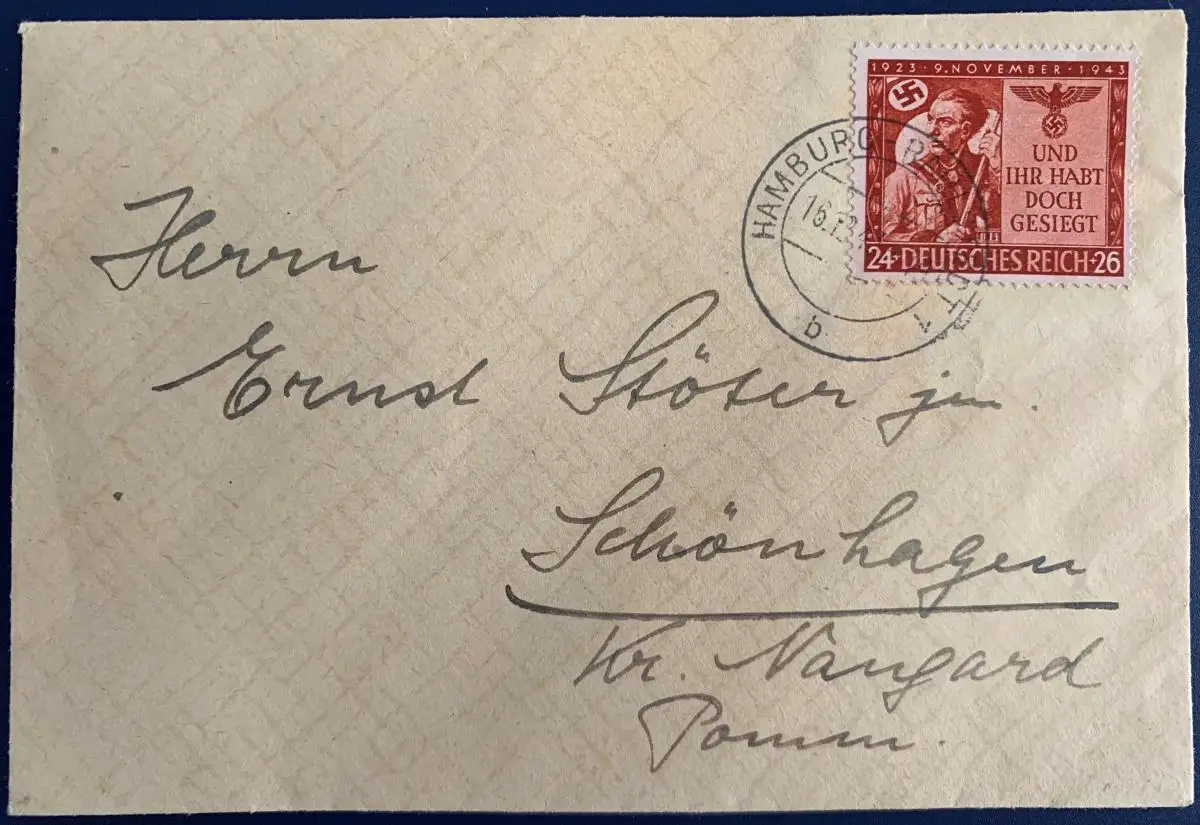 1923 · 9. NOVEMBER · 1943
UND
IHR HABT
DOCH
GESIEGT
24+DEUTSCHES REICH+26
HAMBURG
b
1
Herrn
Ernst Stöter jun.
Schönhagen
Kr. Naugard
Pomm.